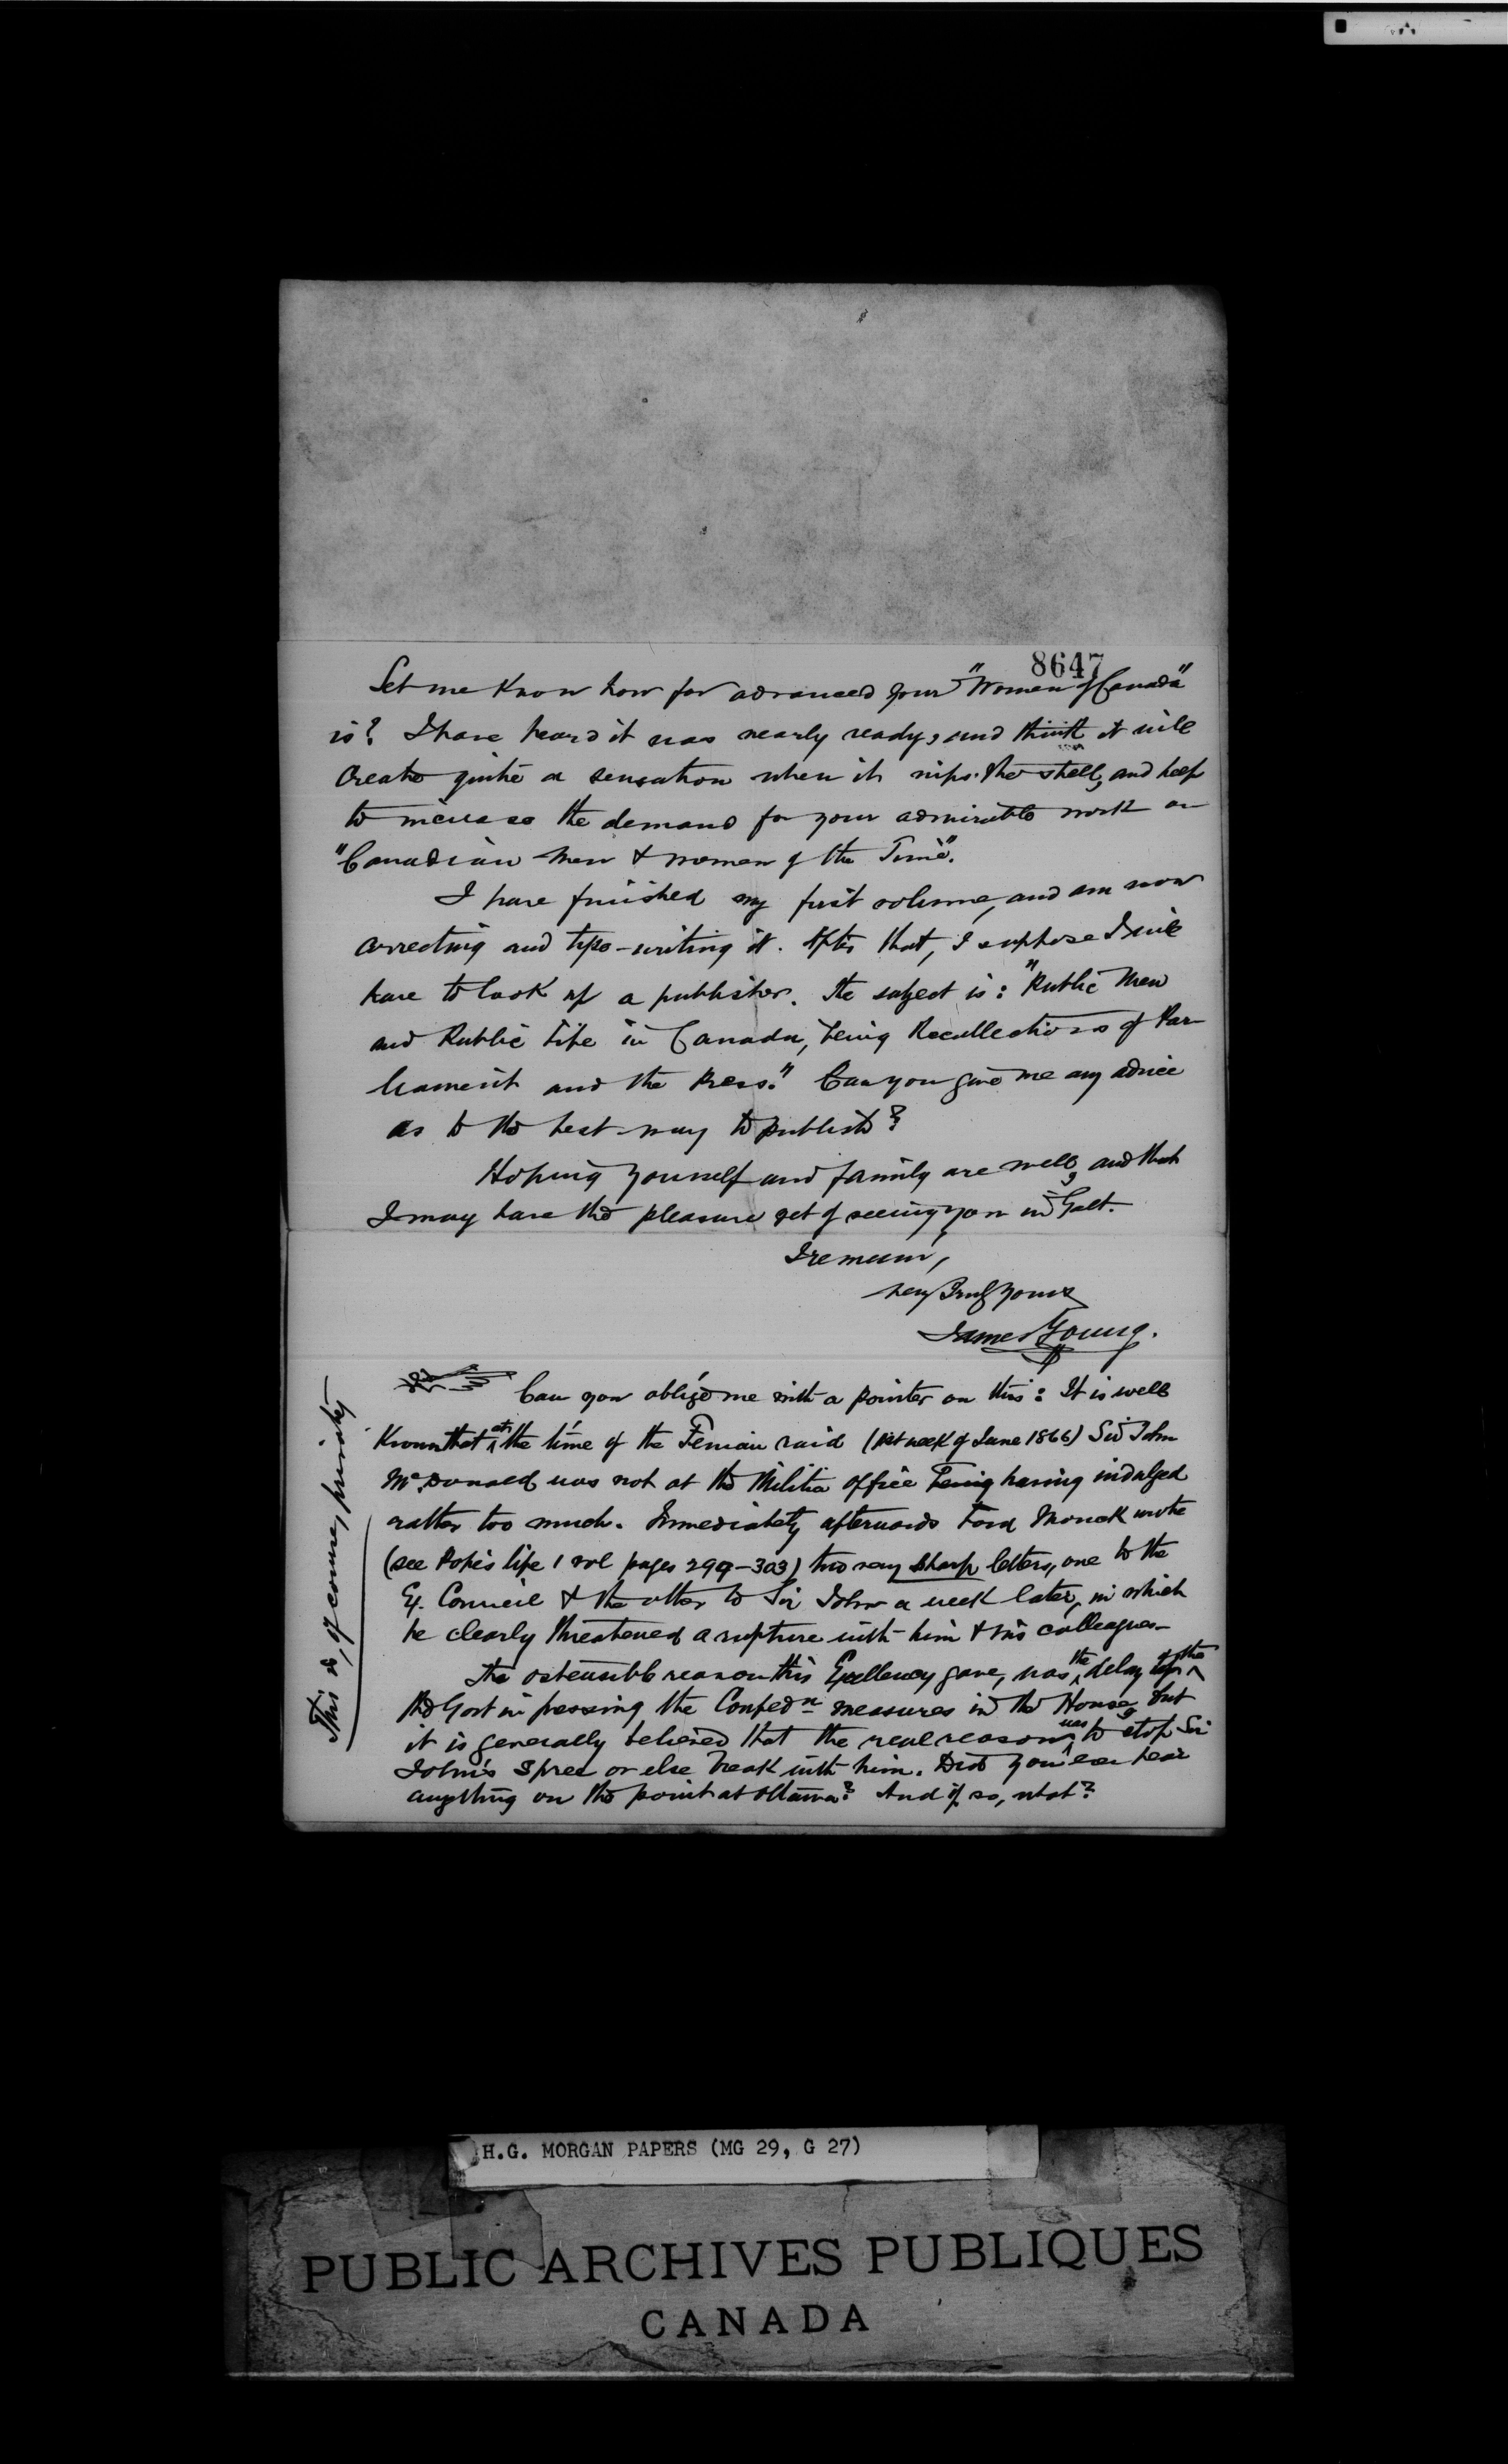 8647
Let me know how far advanced your "Women of Canada"
is? I have heard it was nearly ready, and think it will
create quite a sensation when it nips the shell, and help
to increase the demand for your admirable work on
"Canadian Men & Women of the Time".
I have finished my first volume, and am now
correcting and type-writing it. After that, I suppose I will
have to look up a publisher. The subject is: "Public Men
and Public Life in Canada, being Recollections of Par-
liament and the Press." Can you give me any advice
as to the best way to publish?
Hoping yourself and family are well, and that
I may have the pleasure yet of seeing you in Galt.
I remain,
Very Truly Yours
James Young.
Can you oblige me with a pointer on this: It is well
known that at the time of the Fenian raid (1st week of June 1866) Sir John
McDonald was not at the Militia office being having indulged
rather too much. Immediately afterwards Lord Monck wrote
(see Pope's life 1 vol pages 299-303) two very sharp letters, one to the
Ex. Council & the other to Sir John a week later, in which
he clearly threatened a rupture with him & his colleagues—
The ostensible reason this Excellency gave, was the delay of the
the Govt in passing the Confedn measures in the House, but
it is generally believed that the real reason was to stop Sir
John's spree or else break with him. Did you ever hear
anything on the point at Ottawa? And if so, what?
This is, of course, private
H.G. MORGAN PAPERS (MG 29, G 27)
PUBLIC ARCHIVES PUBLIQUES
CANADA